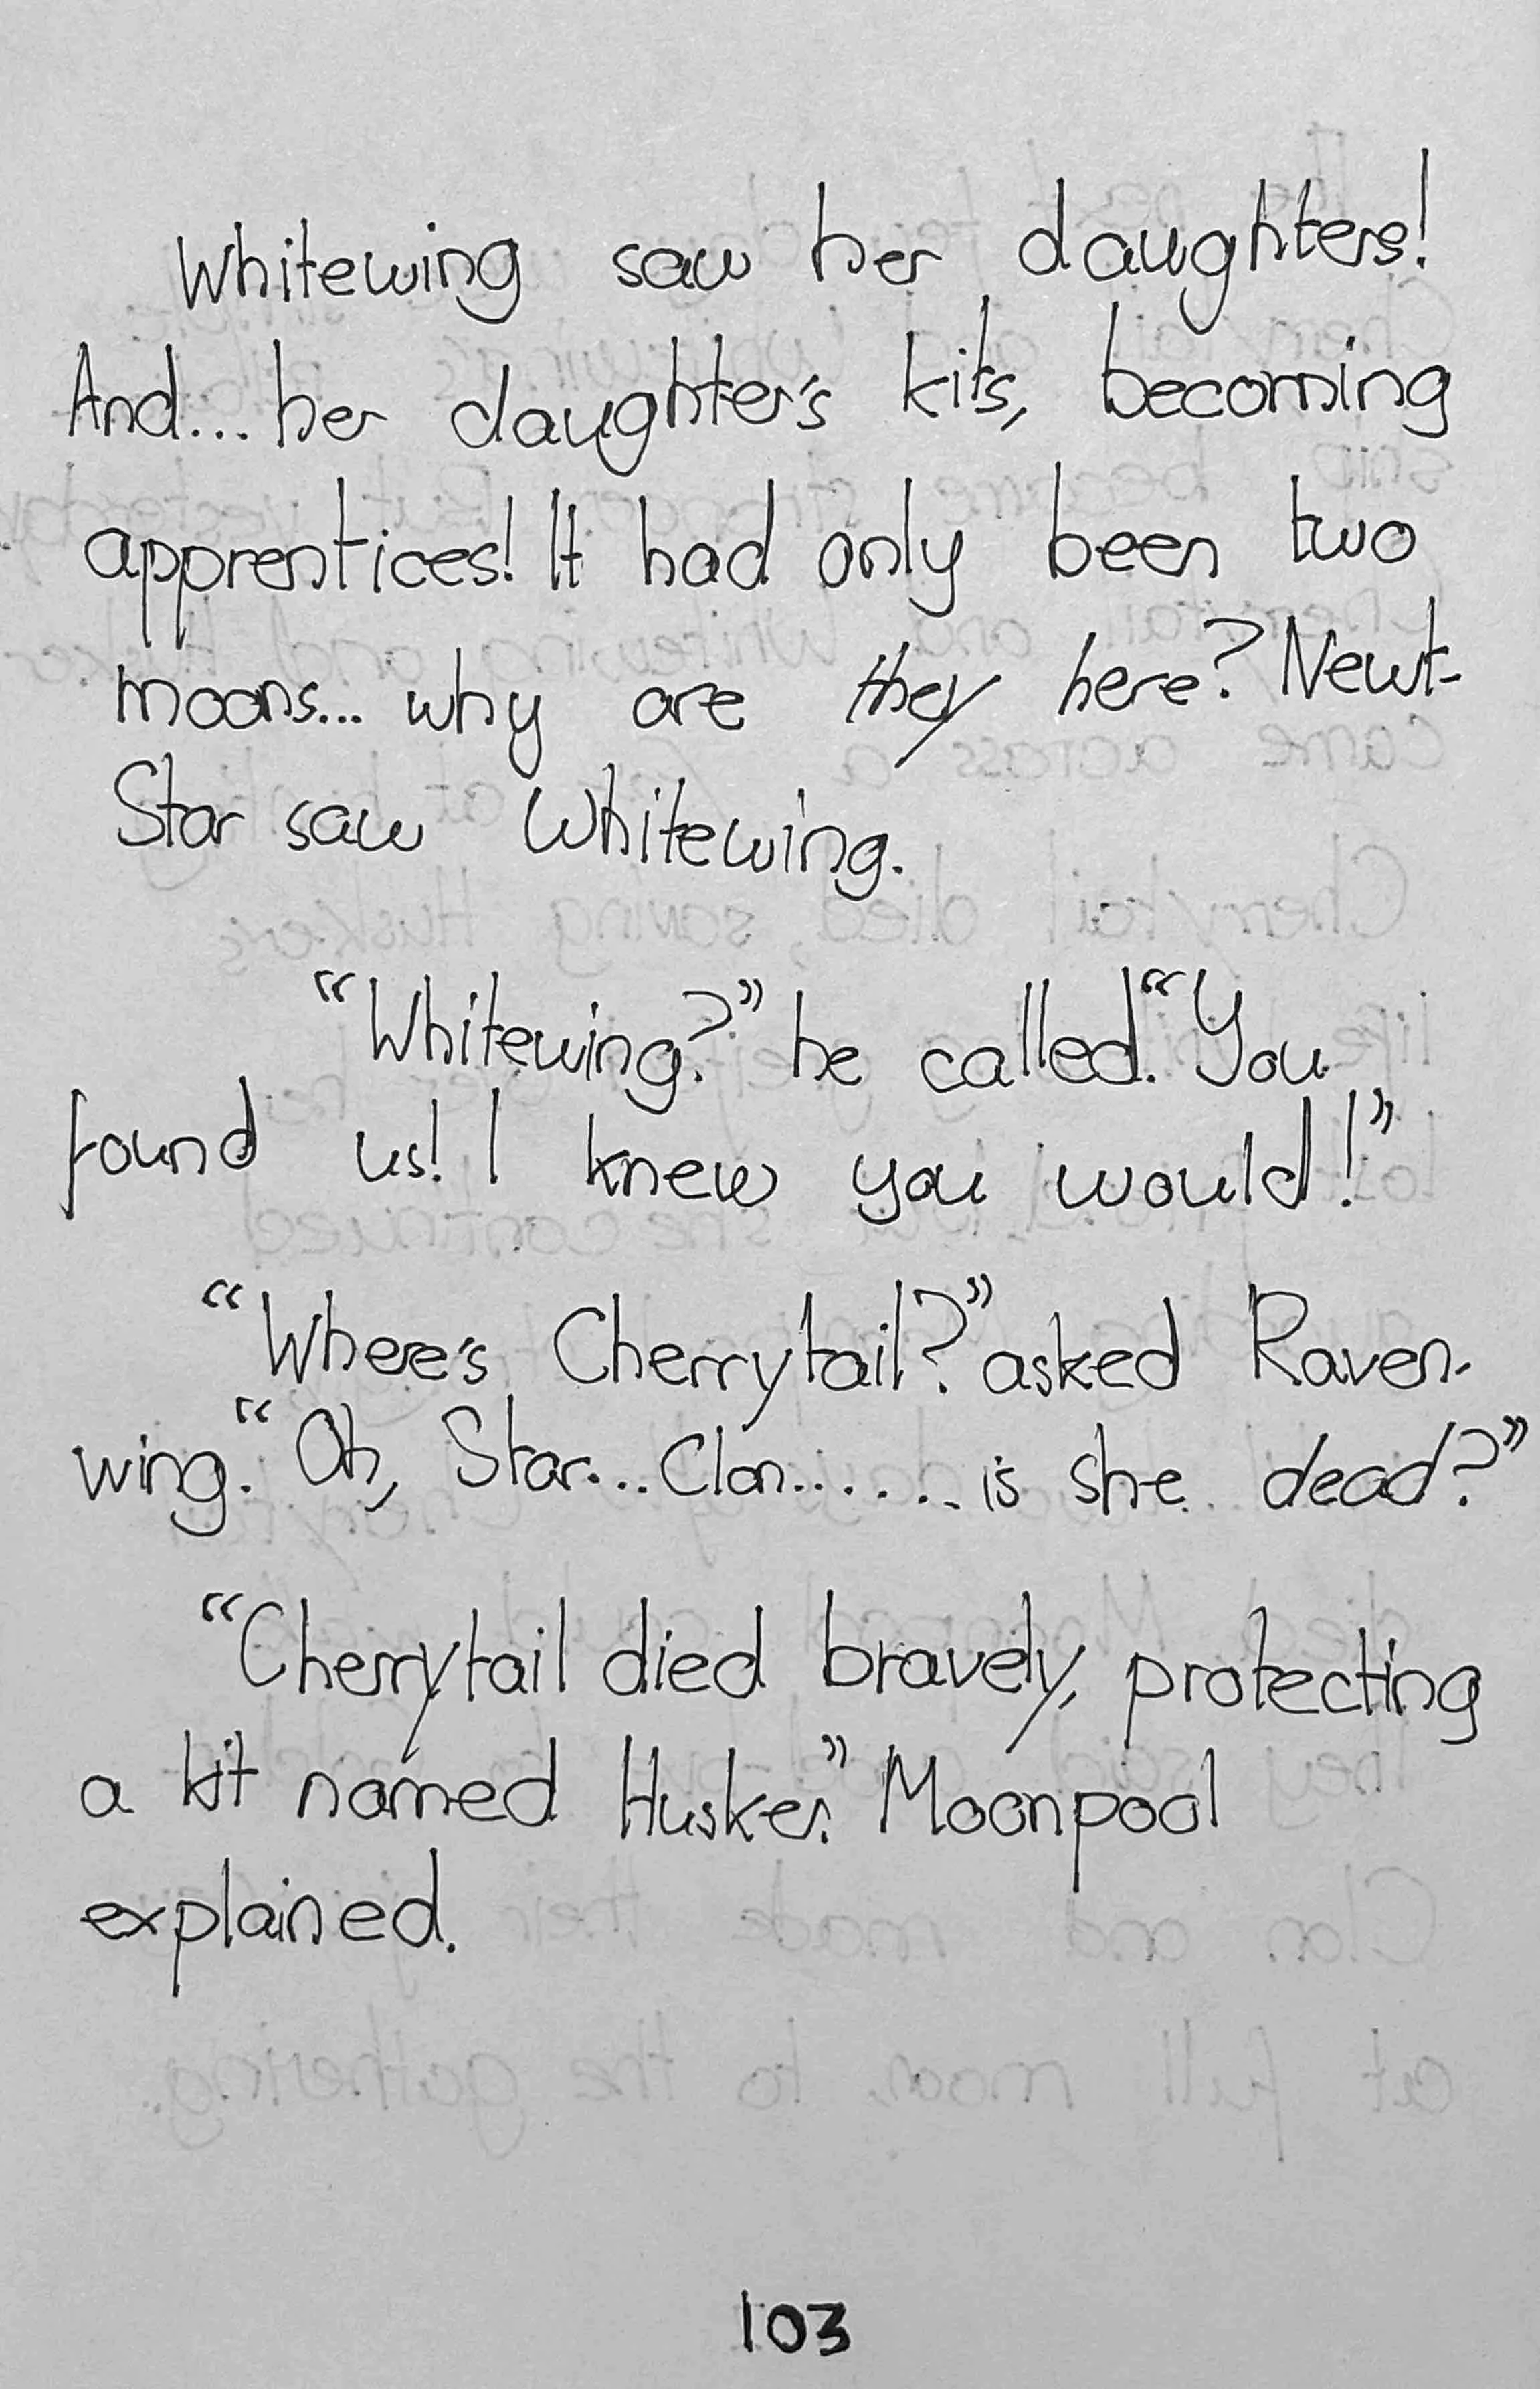 Whitewing saw her daughters!
And... her daughter's kits, becoming
apprentices! It had only been two
moons... why are they here? Newt-
Star saw Whitewing.
"Whitewing?" he called. "You
found us! I knew you would!"
"Where's Cherrytail?" asked Raven-
wing. "Oh, Star... Clan....... is she dead?"
"Cherrytail died bravely, protecting
a kit named Husker." Moonpool
explained.
103